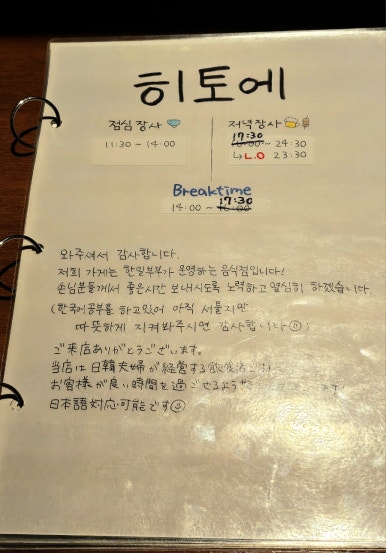 히토에
점심 장사
11:30 ~ 14:00
저녁 장사
17:30
16:00 ~ 24:30
↳ L.O 23:30
Breaktime
17:30
14:00 ~ 16:00
와주셔서 감사합니다.
저희 가게는 한일부부가 운영하는 음식점입니다!
손님분들께서 좋은시간 보내시도록 노력하고 열심히 하겠습니다.
(한국어공부를 하고있어 아직 서툴지만
따뜻하게 지켜봐주시면 감사합니다☺)
ご来店ありがとうございます。
当店は日韓夫婦が経営する飲食店です
お客様が良い時間を過ごせるよう
日本語対応可能です☺